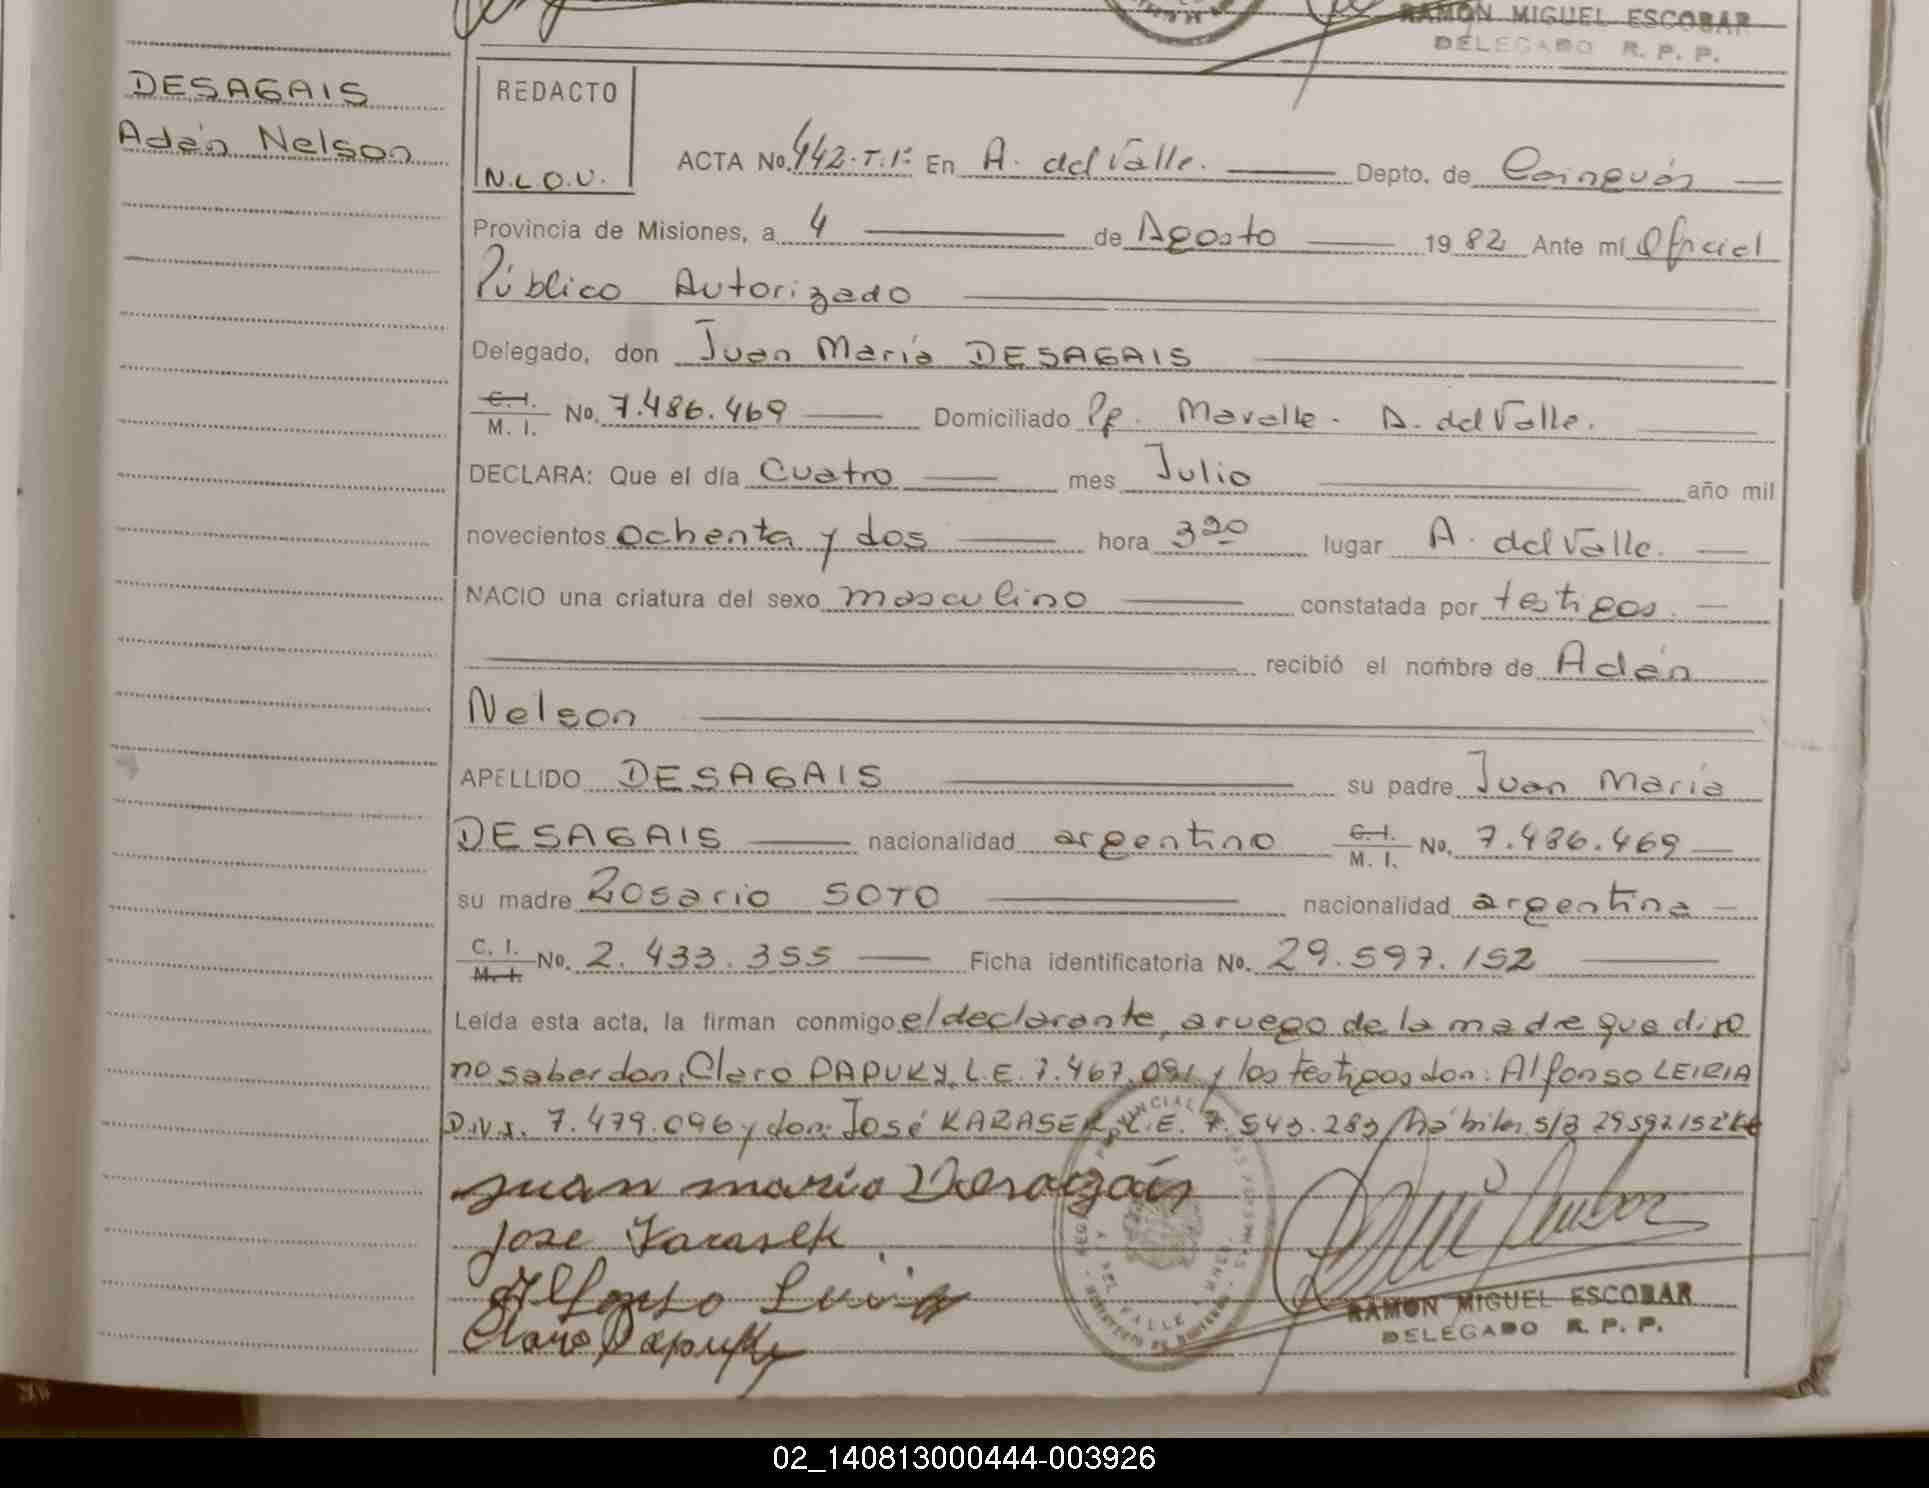 RAMON MIGUEL ESCOBAR
DELEGADO R. P. P.
DESAGAIS
Adán Nelson
REDACTO
N.L.O.V.
ACTA No. 442-T.1º En A. del Valle. Depto. de Cainguás
Provincia de Misiones, a 4 de Agosto 1982 Ante mí Oficial
Público Autorizado
Delegado, don Juan María DESAGAIS
C. I. M. I. No. 7.486.469 Domiciliado Pje. Mavalle - A. del Valle.
DECLARA: Que el día Cuatro mes Julio año mil
novecientos ochenta y dos hora 3 20 lugar A. del Valle.
NACIO una criatura del sexo masculino constatada por testigos.
recibió el nombre de Adán
Nelson
APELLIDO DESAGAIS su padre Juan María
DESAGAIS nacionalidad argentino C. I. M. I. No. 7.486.469
su madre Rosario SOTO nacionalidad argentina
C. I. M. I. No. 2.433.355 Ficha identificatoria No. 29.597.152
Leída esta acta, la firman conmigo el declarante, a ruego de la madre que dijo
no saber don: Claro PAPUKY, L.E. 7.467.091 y los testigos don: Alfonso LEIRIA
D.N.I. 7.479.096 y don: José KARASEK, L.E. 7.543.283 / hábiles s/b 29597152
Juan maria Desagais
Jose Karasek
Alfonso Leiria
Claro Papuky
RAMON MIGUEL ESCOBAR
DELEGADO R. P. P.
02_140813000444-003926